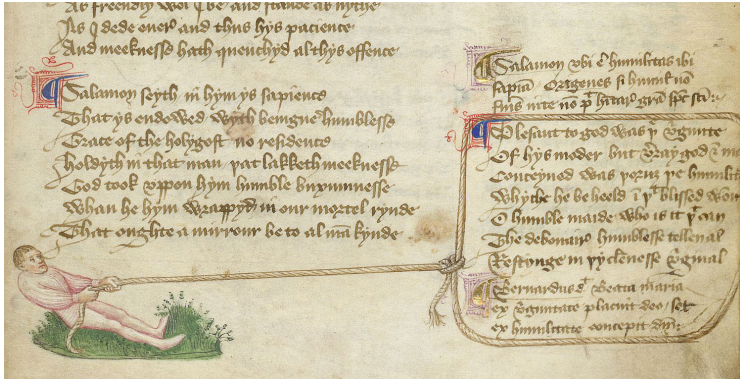 As freendly wol I be and stande as nythe
As I dede ever and thus hys pacience
And meeknesse hath quenchyd al thys offence
Salamon seyth in hym ys sapience
That ys endowed wyth benigne humblesse
Grace of the holygost no residence
Holdyth in that man þat lakketh meeknesse
God took vppon hym humble buxumnesse
Whan he hym wrappyd in our mortel rynde
That oughte a mirrour be to al mākynde
Salamon vbi ē humilitas ibi
sapiā Origenes si humil nō
fuis nō p hitar grā spc sci
Plesant to god was þe v̄gnite
Of hys moder but v̄ray god &
Conceyvod was þe humilite
Whyche he beheeld ī þt blissed
O humble maide who is it þt can
The debonair humblesse tellen al
Restynge in þy clennesse v̄ginal
Bernardus d Beata maria
ex v̄gnitate placuit deo set
ex humilitate concepit dm